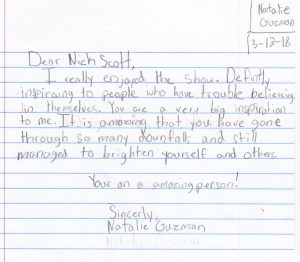 Natalie
Guzman
3-12-18
Dear Nick Scott,
I really enjoyed the show. Defintly
inspiraing to people who have trouble believing
in themselves. You are a very big inspiration
to me. It is amazing that you have gone
through so many downfalls and still
managed to brighten yourself and others.
Your an a amazing person!
Sincerly,
Natalie Guzman